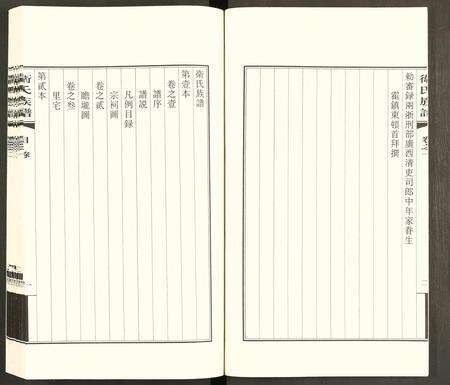 勅審録兩浙刑部廣西清吏司郎中年家眷生
霍鎮東頓首拜撰
衛氏族譜
卷之一
二
衛氏族譜
第壹本
卷之壹
譜序
譜説
凡例目録
宗祠圖
卷之貳
瞻壠圖
卷之叁
里宅
第貳本
衛氏族譜
目錄
一